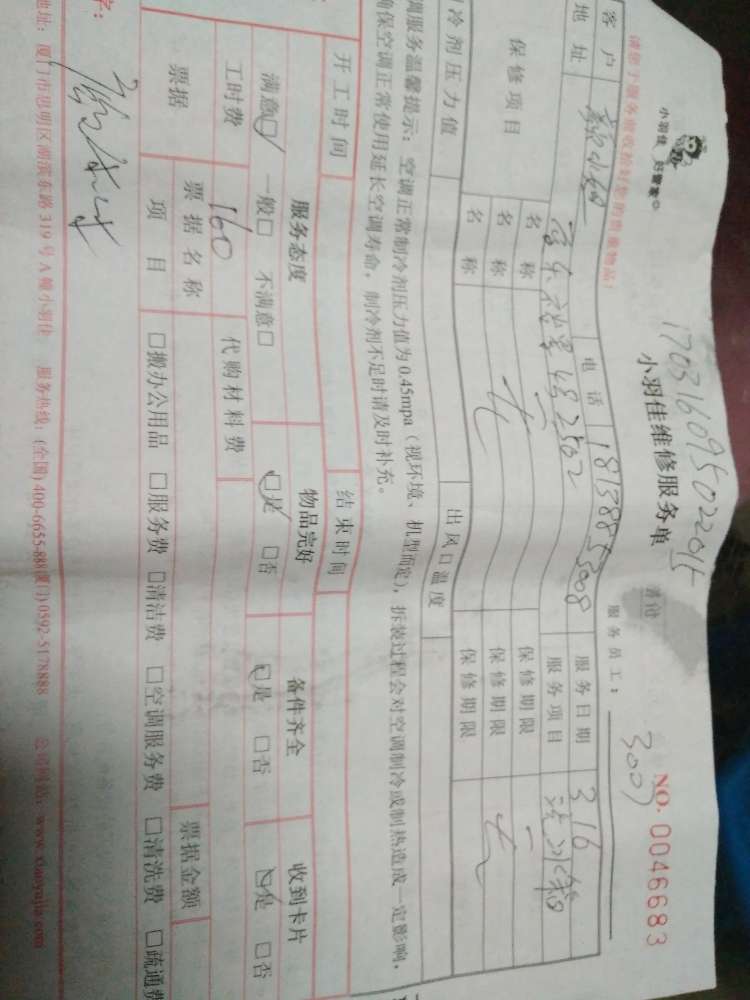 小羽佳 好管家
170316095022015
小羽佳维修服务单
NO. 0046683
请您于服务前收拾好您的贵重物品!
服务员工: 3007
客户 电话 18138853008 服务日期 3.16
地址 482502 服务项目 洗冰箱
保修项目 名称 保修期限
名称 无 保修期限 无
名称 保修期限
冷剂压力值 出风口温度
调服务温馨提示: 空调正常制冷剂压力值为0.45mpa (视环境、机型而定), 拆装过程会对空调制冷或制热造成一定影响,
确保空调正常使用延长空调寿命, 制冷剂不足时请及时补充。
开工时间 结束时间
服务态度 物品完好 备件齐全 收到卡片
满意☑ 一般□ 不满意□ ☑是 □否 ☑是 □否 ☑是 □否
工时费 160 代购材料费
票据 票据名称 票据金额
项目 □搬办公用品 □服务费 □清洁费 □空调服务费 □清洗费 □疏通费
字:
地址: 厦门市思明区湖滨东路319号A幢小羽佳 服务热线: (全国) 400-6655-888(厦门) 0592-5178888 公司网站: www.xiaoyujia.com